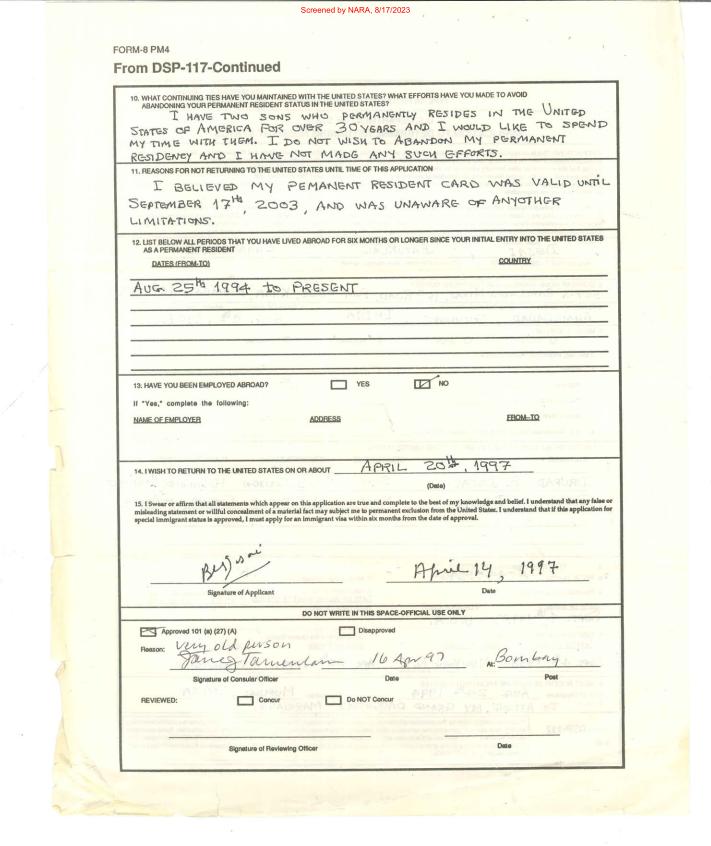 Screened by NARA, 8/17/2023
FORM-8 PM4
From DSP-117-Continued
10. WHAT CONTINUING TIES HAVE YOU MAINTAINED WITH THE UNITED STATES? WHAT EFFORTS HAVE YOU MADE TO AVOID
ABANDONING YOUR PERMANENT RESIDENT STATUS IN THE UNITED STATES?
I HAVE TWO SONS WHO PERMANENTLY RESIDES IN THE UNITED
STATES OF AMERICA FOR OVER 30 YEARS AND I WOULD LIKE TO SPEND
MY TIME WITH THEM. I DO NOT WISH TO ABANDON MY PERMANENT
RESIDENCY AND I HAVE NOT MADE ANY SUCH EFFORTS.
11. REASONS FOR NOT RETURNING TO THE UNITED STATES UNTIL TIME OF THIS APPLICATION
I BELIEVED MY PEMANENT RESIDENT CARD WAS VALID UNTIL
SEPTEMBER 17th, 2003, AND WAS UNAWARE OF ANYOTHER
LIMITATIONS.
12. LIST BELOW ALL PERIODS THAT YOU HAVE LIVED ABROAD FOR SIX MONTHS OR LONGER SINCE YOUR INITIAL ENTRY INTO THE UNITED STATES
AS A PERMANENT RESIDENT
DATES (FROM-TO) COUNTRY
AUG. 25th 1994 to PRESENT
13. HAVE YOU BEEN EMPLOYED ABROAD? YES NO
If "Yes," complete the following:
NAME OF EMPLOYER ADDRESS FROM-TO
14. I WISH TO RETURN TO THE UNITED STATES ON OR ABOUT APRIL 20th, 1997
(Date)
15. I Swear or affirm that all statements which appear on this application are true and complete to the best of my knowledge and belief. I understand that any false or
misleading statement or willful concealment of a material fact may subject me to permanent exclusion from the United States. I understand that if this application for
special immigrant status is approved, I must apply for an immigrant visa within six months from the date of approval.
April 14, 1997
Signature of Applicant Date
DO NOT WRITE IN THIS SPACE-OFFICIAL USE ONLY
Approved 101 (a) (27) (A) Disapproved
Reason: very old person
16 Apr 97 At: Bombay
Signature of Consular Officer Date Post
REVIEWED: Concur Do NOT Concur
Signature of Reviewing Officer Date